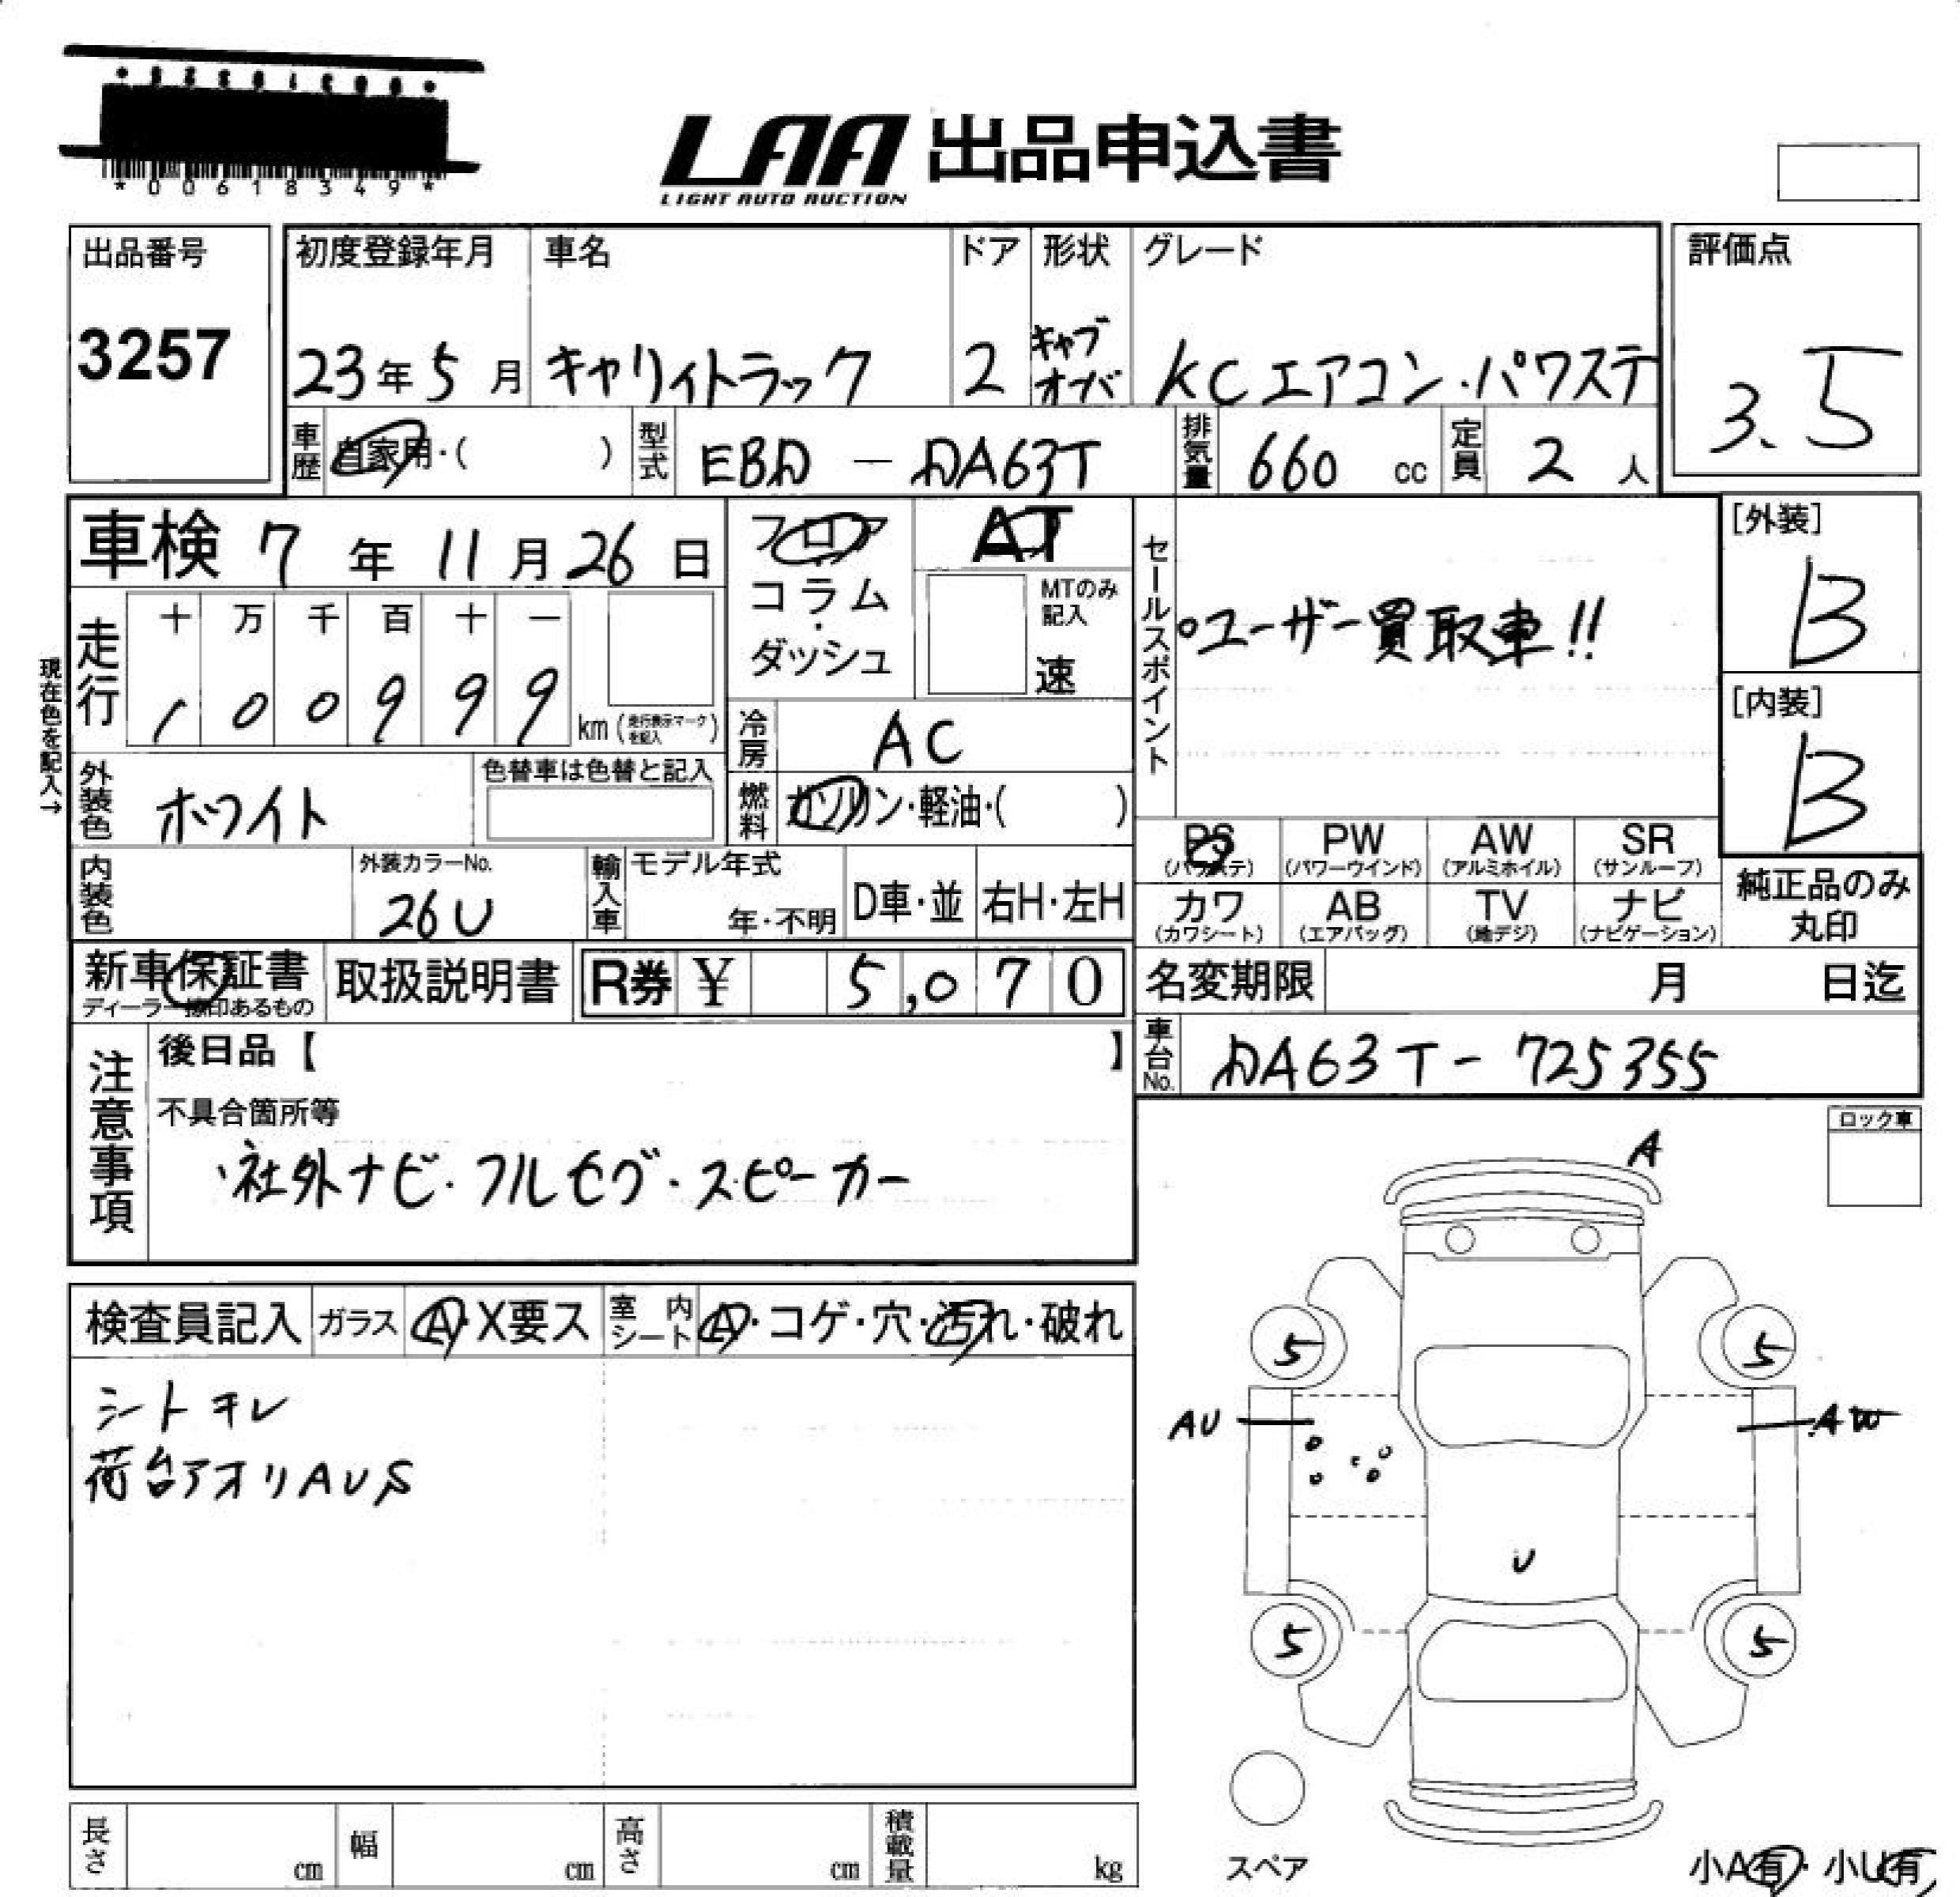 *00618349*
LAA 出品申込書
LIGHT AUTO AUCTION
出品番号
3257
初度登録年月
23年5月
車名
キャリイトラック
ドア
2
形状
キャブオーバ
グレード
KCエアコン・パワステ
評価点
3.5
車歴 自家用・( )
型式 EBD-DA63T
排気量 660 cc
定員 2 人
車検 7年11月26日
フロア・コラム・ダッシュ
AT
MTのみ記入
速
セールスポイント
ユーザー買取車!!
[外装]
B
[内装]
B
現在色を記入→
走行 十 万 千 百 十 一
1 0 0 9 9 9 km (走行表示マークを記入)
冷房 AC
外装色 ホワイト
色替車は色替と記入
燃料 ガソリン・軽油・( )
PS (パワステ)
PW (パワーウインド)
AW (アルミホイル)
SR (サンルーフ)
カワ (カワシート)
AB (エアバッグ)
TV (地デジ)
ナビ (ナビゲーション)
純正品のみ丸印
内装色
外装カラーNo.
26U
輸入車
モデル年式
年・不明
D車・並
右H・左H
新車保証書
ディーラー捺印あるもの
取扱説明書
R券 ¥ 5,070
名変期限 月 日迄
車台No. DA63T-725355
注意事項
後日品【 】
不具合箇所等
社外ナビ・フルセグ・スピーカー
ロック車
検査員記入
ガラス A・X要ス
室内シート A・コゲ・穴・汚れ・破れ
シートキレ
荷台アオリAUS
A
5
5
AU
AW
U
5
5
スペア
長さ cm
幅 cm
高さ cm
積載量 kg
小A有・小U有